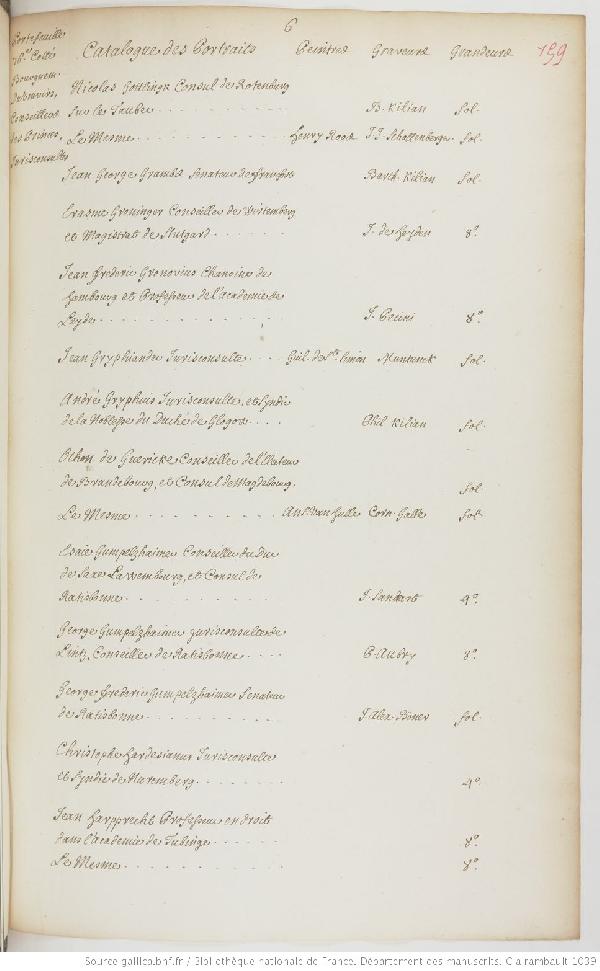 6
159
Portefeuille
Cotté
Bourguem.
Conseillers
des Princes,
Jurisconsultes
Catalogue des Portraits Peintres Graveurs Grandeurs
Nicolas Gottlinge Consul de Rotenburg
sur le Tauber B. Kilian fol.
Le Mesme Henry Roos J. J. Schollenberger fol.
Jean George Grambs Senateur de francfort Barth. Kilian fol.
Erasme Groninger Conseiller de Wirtemberg
et Magistrat de Stutgard J. de Heyden 8°.
Jean frederic Gronovius Chanoine de
hambourg et Professeur de l'academie de
Leyde 8°.
Jean Gryphiander Jurisconsulte Guil. de Simon Muntinck fol.
André Gryphius Jurisconsulte, et Syndic
de la Noblesse du Duché de Glogow Phil Kilian fol.
Othon de Guericke Conseiller de l'Electeur
de Brandebourg, et Consul de Magdebourg. fol
Le Mesme Ans. Van hulle Corn. Galle fol.
Esaie Gumpelzhaimer Conseiller du Duc
de Saxe Lawembourg, et Consul de
Ratisbonne J. Sandrart 4°.
George Gumpelzhaimer jurisconsulte de
Lintz, Conseiller de Ratisbonne P. Aubry 8°.
George frederic Gumpelzhaimer Senateur
de Ratisbonne J. Alex. Böner fol.
Christophe hardesianus Jurisconsulte
et Syndic de Nuremberg 4°.
Jean harpprecht Professeur en droit
dans l'academie de Tubinge 8°.
Le Mesme 8°.
Source gallica.bnf.fr / Bibliothèque nationale de France. Département des manuscrits. Clairambault 1039